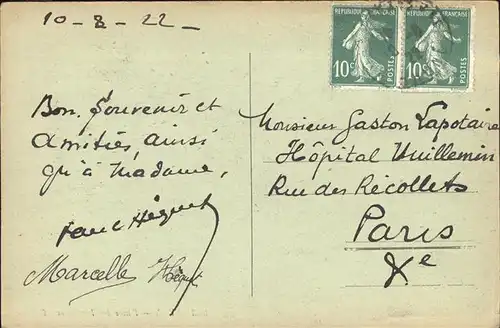 10-8-22-
RÉPUBLIQUE FRANÇAISE
10c POSTES
RÉPUBLIQUE FRANÇAISE
10c POSTES
Bon Souvenir et
Amitiés, ainsi
qu'à Madame,
Paul Héquet
Marcelle Héquet
Monsieur Gaston Lapotaire
Hôpital Vuillemin
Rue des Récollets
Paris
Xe